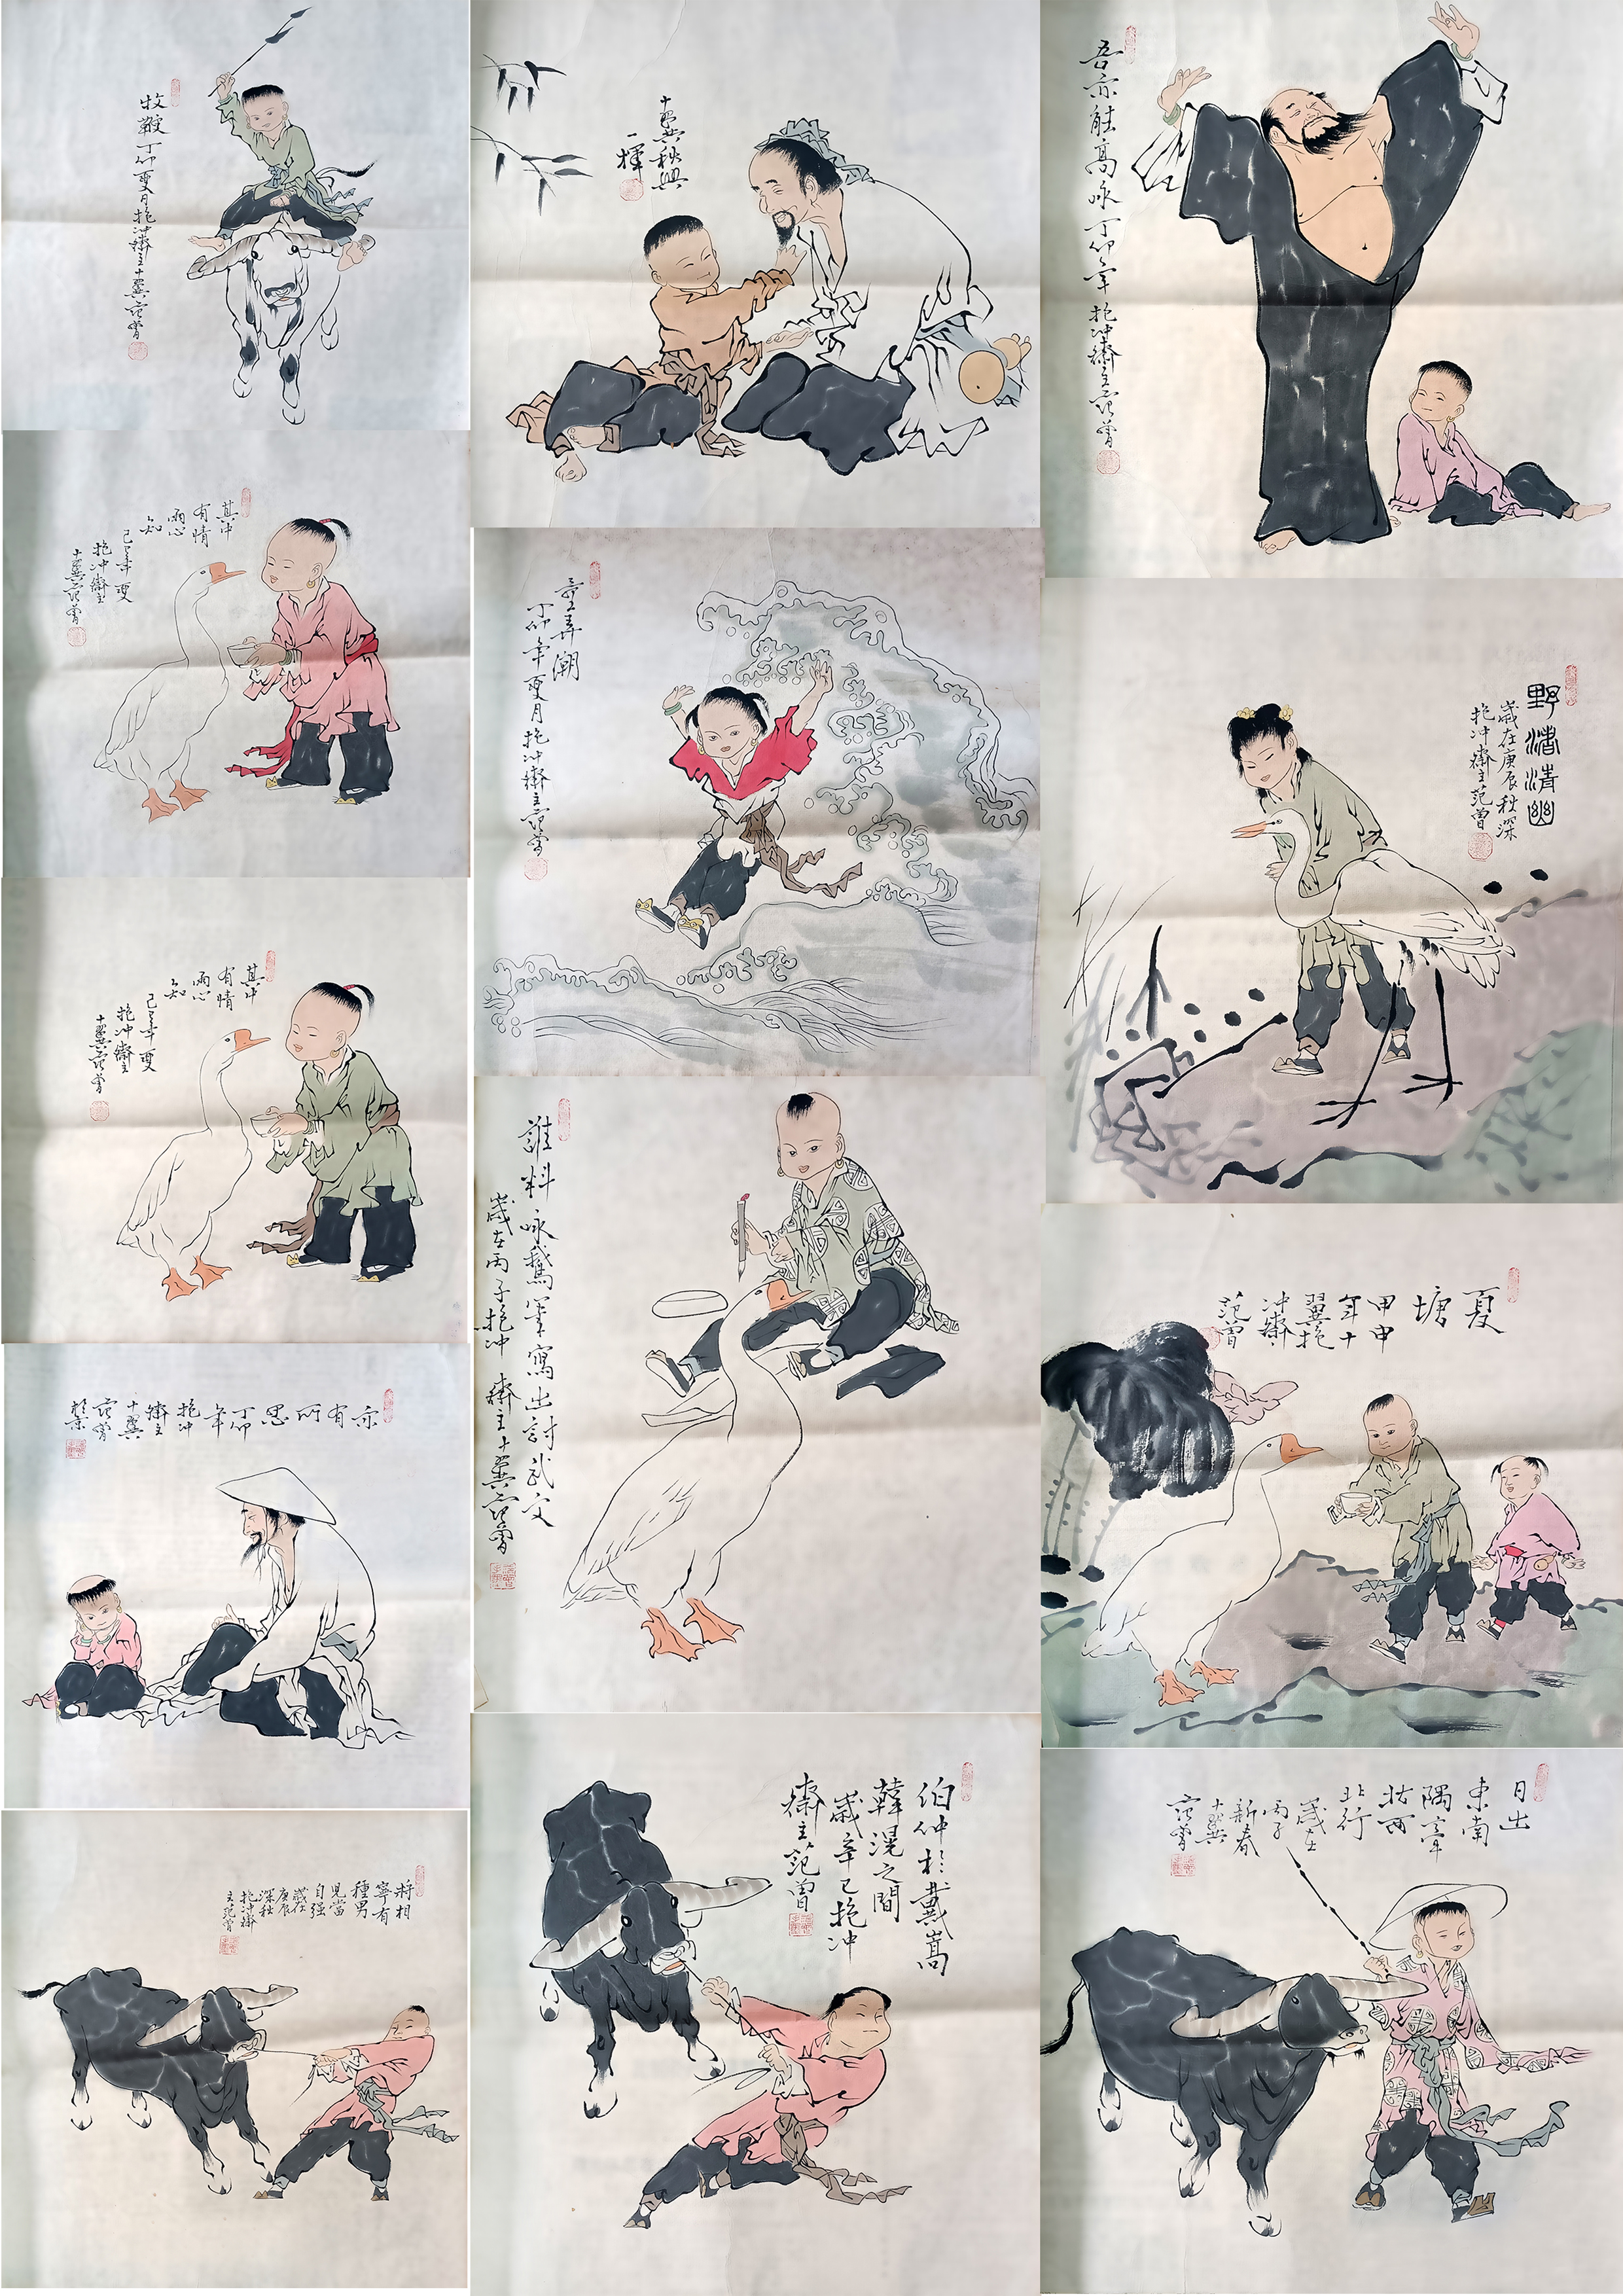 牧鞭丁卯夏月抱冲齋主十翼范曾
十翼秋興
一揮
吾亦能高咏丁卯年抱冲齋主范曾
其中
有情
兩心
知
己巳年夏
抱冲齋主
十翼范曾
童弄潮
丁卯年夏月抱冲齋主范曾
野渚清幽
歲在庚辰秋深
抱冲齋主范曾
其中
有情
兩心
知
己巳年夏
抱冲齋主
十翼范曾
誰料咏鵝筆寫出討武文
歲在丙子抱冲齋主十翼范曾
夏
塘
甲申
年十
翼抱
冲齋
范曾
亦
有
所
思
丁卯
年
抱冲
齋主
十翼
范曾
將相
寧有
種男
兒當
自强
歲在
庚辰
深秋
抱冲齋
主范曾
伯仲於戴嵩
韓滉之間
歲辛巳抱冲
齋主范曾
日出
東南
隅牽
牯西
北行
歲在
丙子
新春
十翼
范曾